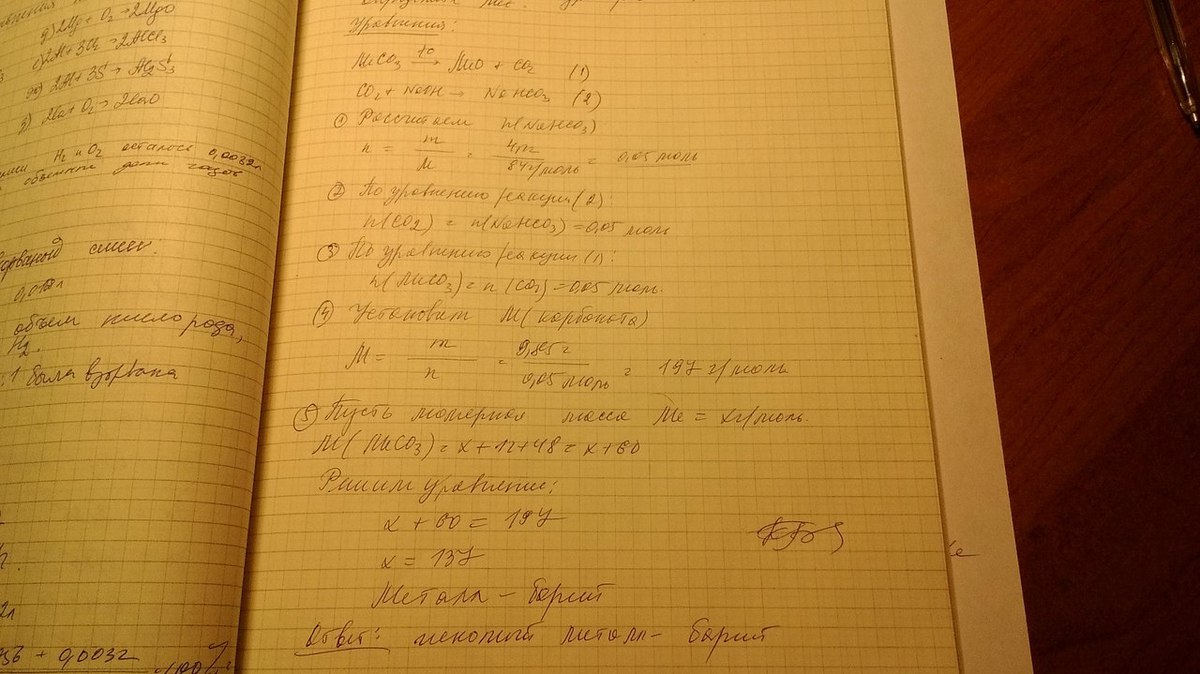 д) 2Mg + O₂ → 2MgO
е) 2Al + 3Cl₂ → 2AlCl₃
ж) 2Al + 3S → Al₂S₃
з) 2Ca + O₂ → 2CaO
H₂ и O₂ осталось 0,0032л
объемные доли газов
смеси.
0,018л
объем кислорода,
H₂.
была взорвана
2л
+ 0,0032
Уравнения:
MeCO₃ t° → MeO + CO₂ (1)
CO₂ + NaOH → NaHCO₃ (2)
① Рассчитаем n(NaHCO₃)
n = m/M = 4,2г/84г/моль = 0,05 моль
② По уравнению реакции (2):
n(CO₂) = n(NaHCO₃) = 0,05 моль
③ По уравнению реакции (1):
n(MeCO₃) = n(CO₂) = 0,05 моль.
④ Установим M(карбоната)
M = m/n = 9,85г/0,05 моль = 197 г/моль
⑤ Пусть молярная масса Me = x г/моль.
M(MeCO₃) = x + 12 + 48 = x + 60
Решим уравнение:
x + 60 = 197
x = 137
Металл – барий
Ответ: искомый металл – барий